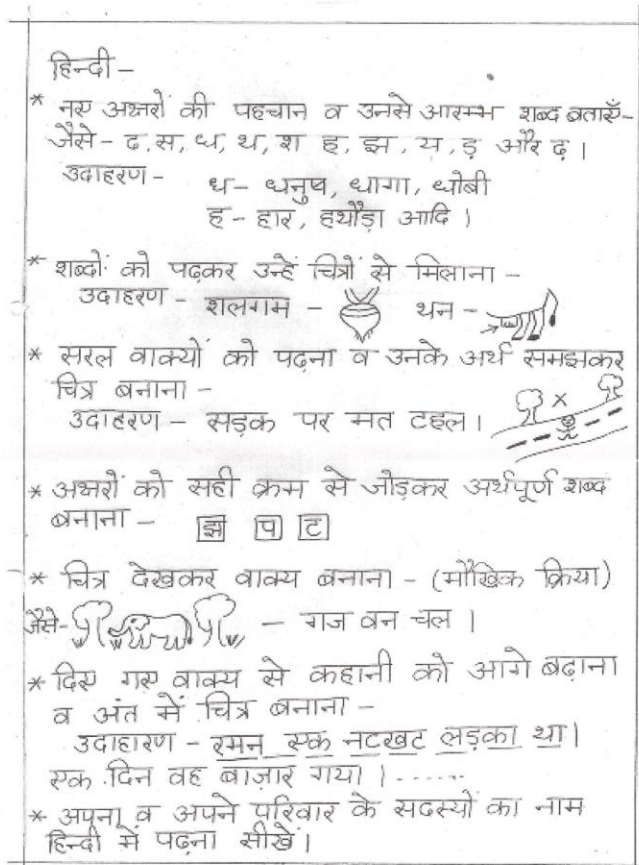 हिन्दी -
* नए अक्षरों की पहचान व उनसे आरम्भ शब्द बताएँ-
जैसे - द, स, ध, थ, श ह, झ, य, ड़ और ढ़ ।
उदाहरण - ध- धनुष, धागा, धोबी
ह - हार, हथौड़ा आदि ।
* शब्दों को पढ़कर उन्हें चित्रों से मिलाना -
उदाहरण - शलगम - थन -
* सरल वाक्यों को पढ़ना व उनके अर्थ समझकर
चित्र बनाना -
उदाहरण - सड़क पर मत टहल ।
* अक्षरों को सही क्रम से जोड़कर अर्थपूर्ण शब्द
बनाना - झ प ट
* चित्र देखकर वाक्य बनाना - (मौखिक क्रिया)
जैसे- - गज वन चल ।
* दिए गए वाक्य से कहानी को आगे बढ़ाना
व अंत में चित्र बनाना -
उदाहारण - रमन एक नटखट लड़का था।
एक दिन वह बाज़ार गया । ......
* अपना व अपने परिवार के सदस्यों का नाम
हिन्दी में पढ़ना सीखें ।